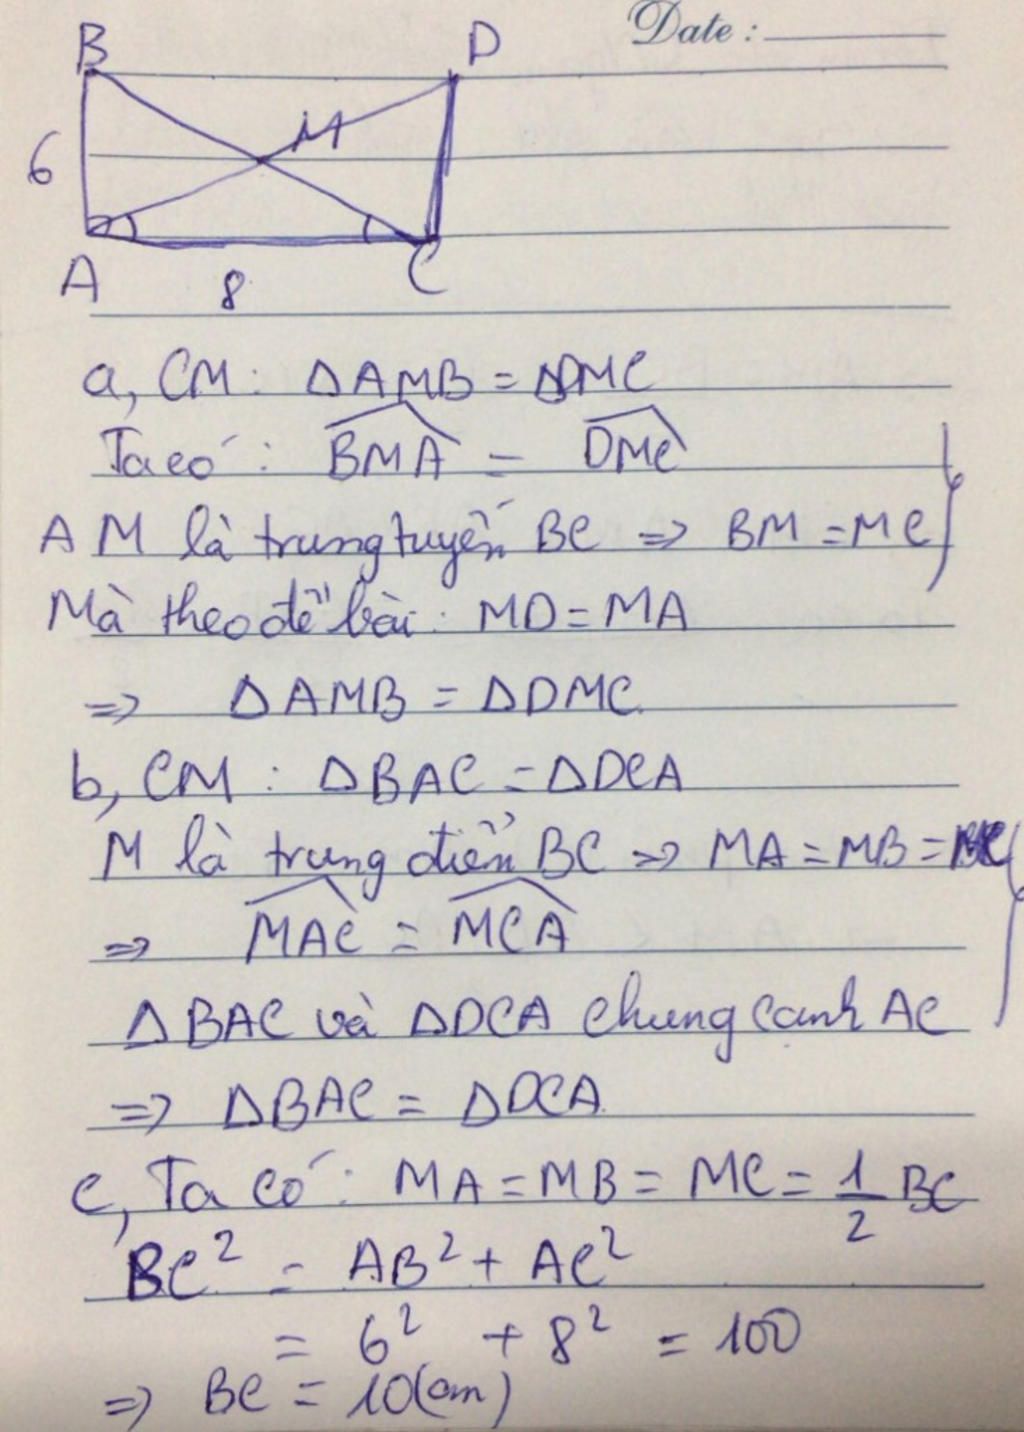 Date :
B D
M
6
A 8 C
a, CM : ΔAMB = ΔDMC
Ta có : \widehat{BMA} = \widehat{DMC}
AM là trung tuyến BC => BM = MC }
Mà theo đề bài : MD = MA
=> ΔAMB = ΔDMC
b, CM : ΔBAC = ΔDCA
M là trung điểm BC => MA = MB = MC }
=> \widehat{MAC} = \widehat{MCA}
ΔBAC và ΔDCA chung cạnh AC
=> ΔBAC = ΔDCA
c, Ta có : MA = MB = MC = 1/2 BC
BC² = AB² + AC²
= 6² + 8² = 100
=> BC = 10(cm)